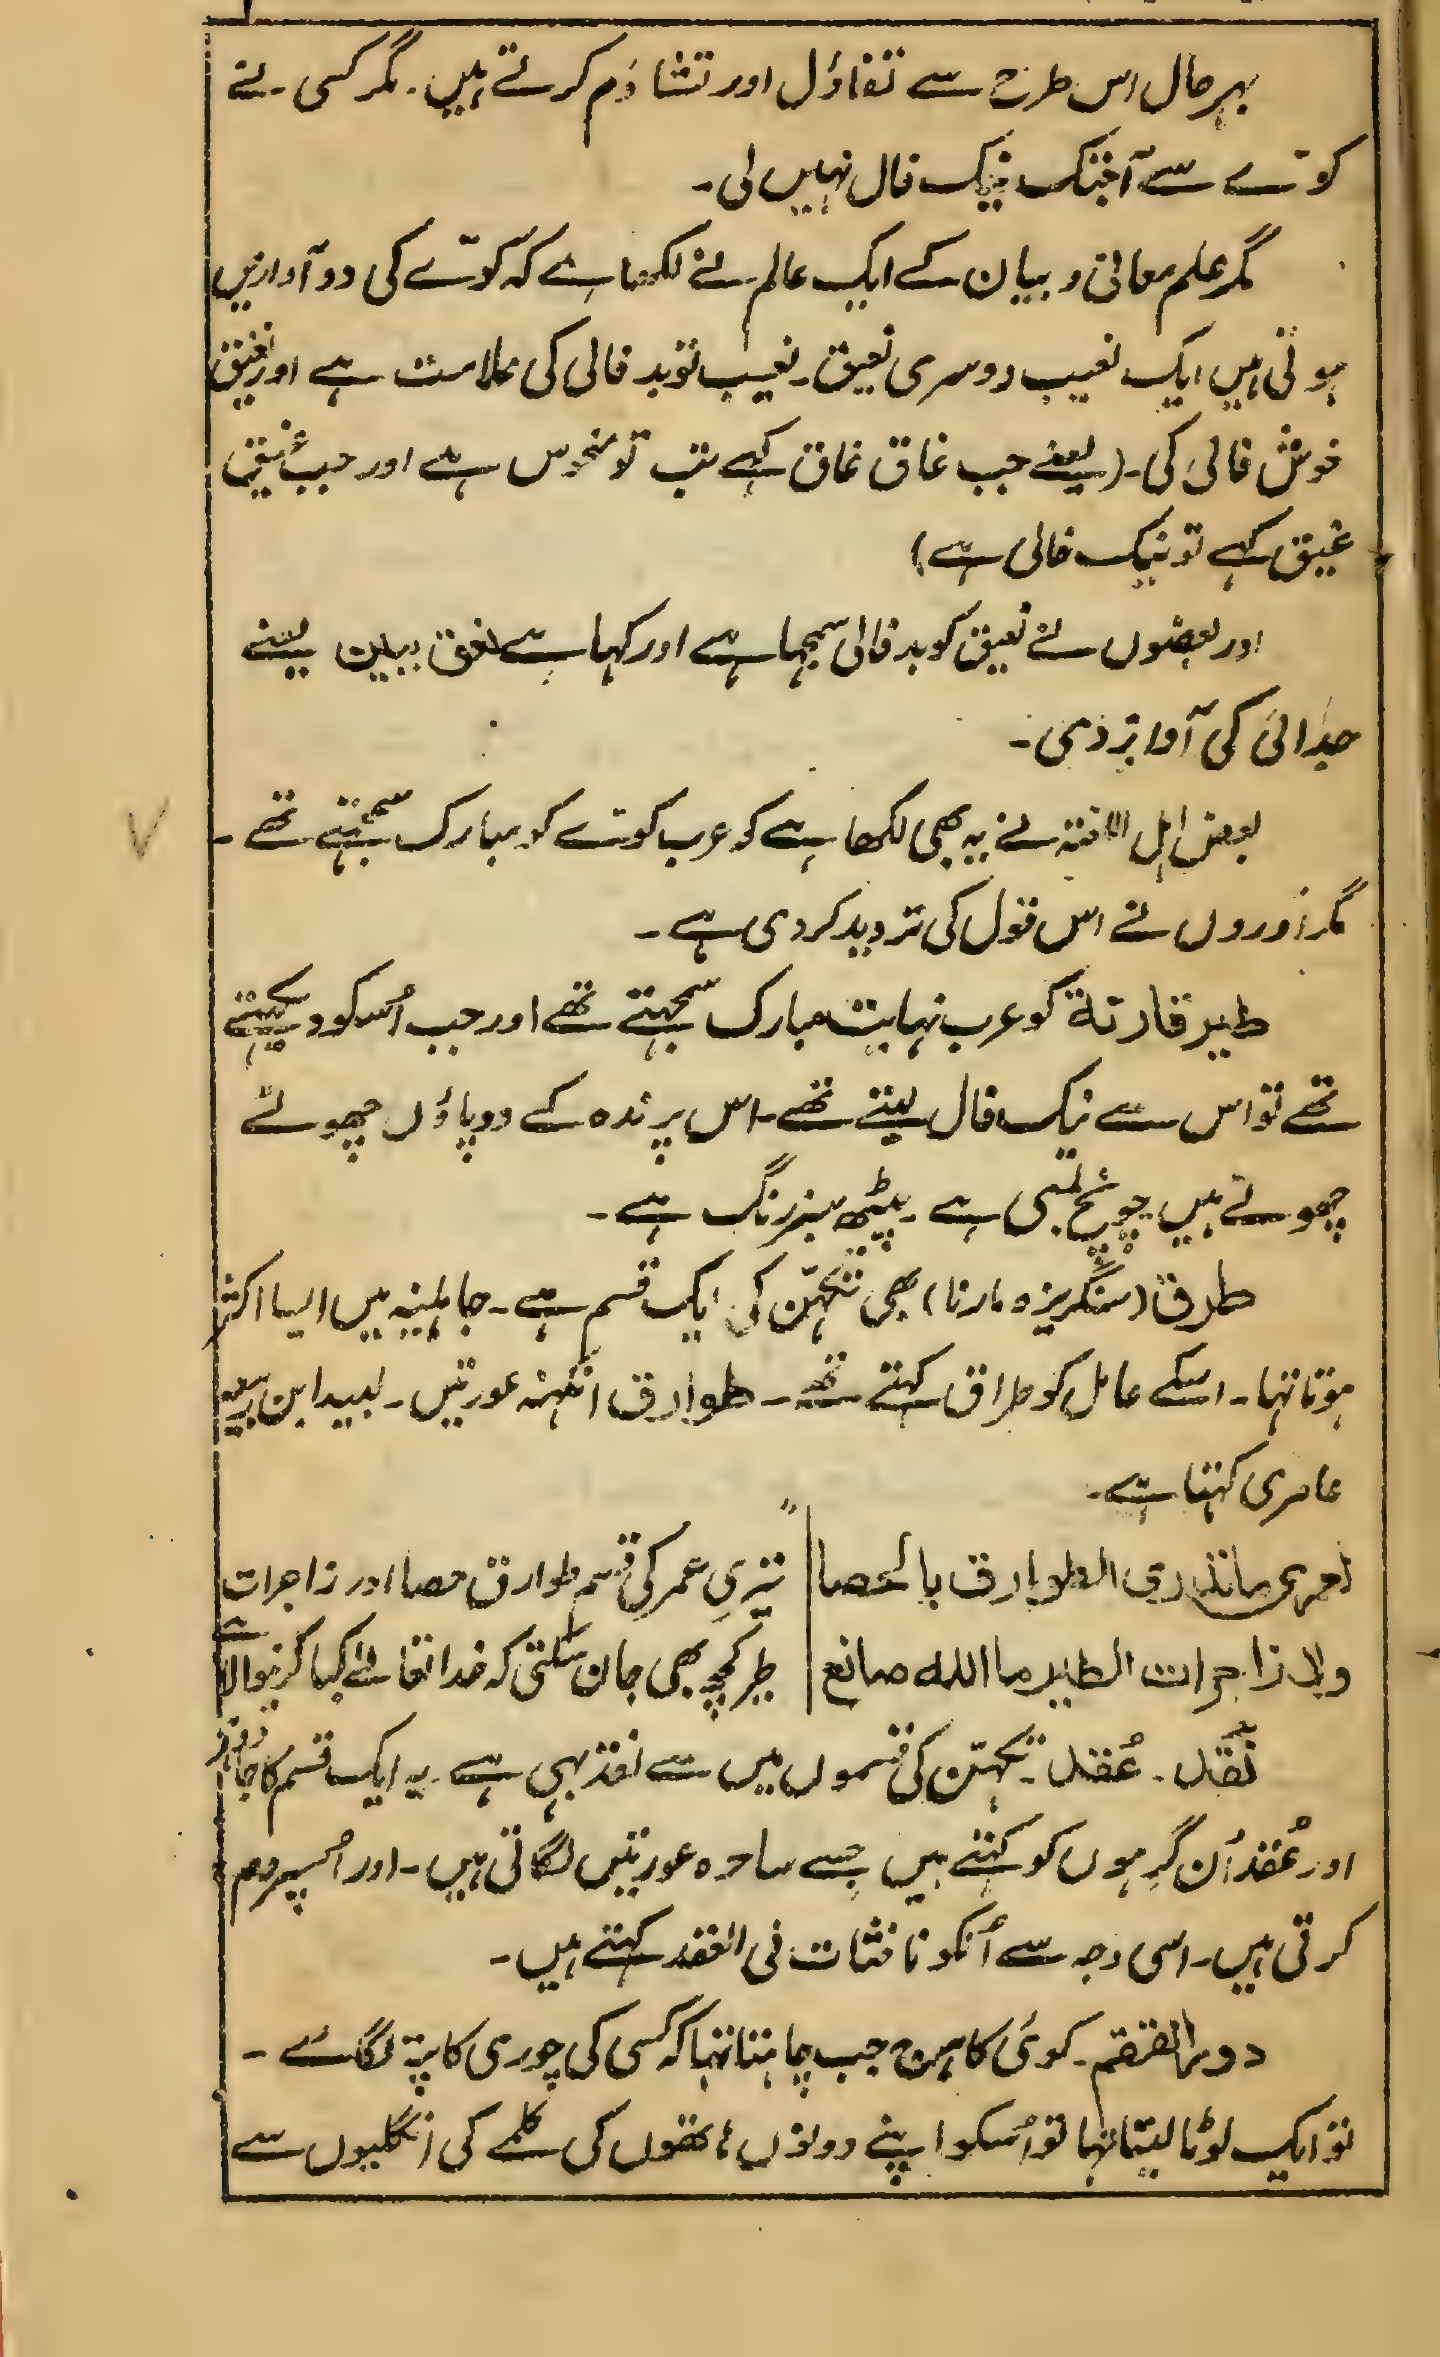 بہرحال اس طرح سے تفاؤل اور تشاؤم کرتے ہیں۔ مگر کسی نے
کوّے سے آجتک نیک فال نہیں لی۔
مگر علم معانی و بیان کے ایک عالم نے لکھا ہے کہ کوّے کی دو آوازیں
ہوتی ہیں ایک نعیب دوسری نعیق۔ نعیب تو بد فالی کی علامت ہے اور نغیق
خوش فالی کی۔ (یعنے جب غاق غاق کہے تب تو منحوس ہے اور جب غیق
غیق کہے تو نیک فالی ہے)
اور بعضوں نے نعیق کو بد فالی سمجہا ہے اور کہا ہے نعق ببین یعنے
جدائی کی آواز دی۔
بعض اہل اللغتہ نے یہ بھی لکھا ہے کہ عرب کوّے کو مبارک سمجہتے تھے۔
مگر اَوروں نے اس قول کی تردید کر دی ہے۔
طیر قارتۃ کو عرب نہایت مبارک سمجہتے تھے اور جب اُسکو دیکہتے
تھے تو اس سے نیک فال لیتے تھے۔ اس پرندہ کے دو پاؤں چھوٹے
چھوٹے ہیں چونچ لمبی ہے۔ پیٹھ سبز رنگ ہے۔
طرق (سنگریزہ مارنا) بھی تکہّن کی ایک قسم ہے۔ جاہلیتہ میں ایسا اکثر
ہوتا تہا۔ اسکے عامل کو طراق کہتے تھے۔ طوارق متکہنہ عورتیں۔ لبید ابن ربیعہ
عامری کہتا ہے۔
لعمری ماتدری الطوارق بالحصا | تیری عمر کی قسم طوارق حصا اور زاجرات
ولا زاجرات الطیر ما اللہ صانع | طیر کچھ بھی جان سکتی کہ خدا تعالےٰ کیا کرنیوالا ہے
نَفَل۔ عُقَد۔ تکہّن کی قسموں میں سے بہی ہے۔ یہ ایک قسم کا جادو
اور عُقد اُن گِرہوں کو کہتے ہیں جسے ساحرہ عورتیں لگاتی ہیں۔ اور اُسپر دم
کرتی ہیں۔ اسی وجہ سے اُنکو نافثات فی العقد کہتے ہیں۔
دورالقمقم۔ کوئی کاہن جب چاہتا تہا کہ کسی کی چوری کا پتہ لگائے۔
تو ایک لوٹا لیتا تہا تو اُسکو اپنے دونوں ہاتھوں کی کلمے کی انگلیوں سے